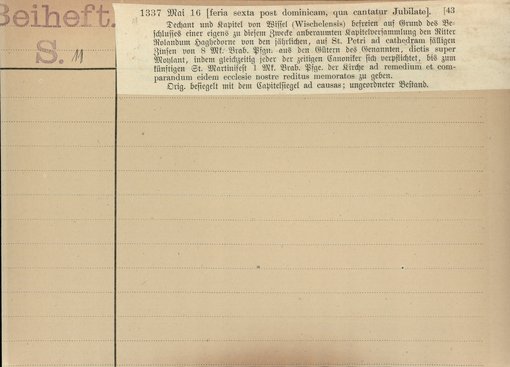 Beiheft.
S. 11
1337 Mai 16 [feria sexta post dominicam, qua cantatur Jubilate]. [43
Dechant und Kapitel von Wissel (Wischelensis) befreien auf Grund des Be-
schlusses einer eigens zu diesem Zwecke anberaumten Kapitelversammlung den Ritter
Rolandum Haghedorne von den jährlichen, auf St. Petri ad cathedram fälligen
Zinsen von 8 Mk. Brab. Pfgn. aus den Gütern des Genannten, dictis super
Moylant, indem gleichzeitig jeder der zeitigen Canoniker sich verpflichtet, bis zum
künftigen St. Martinifest 1 Mk. Brab. Pfge. der Kirche ad remedium et com-
parandum eidem ecclesie nostre reditus memoratos zu geben.
Orig. besiegelt mit dem Capitelsiegel ad causas; ungeordneter Bestand.